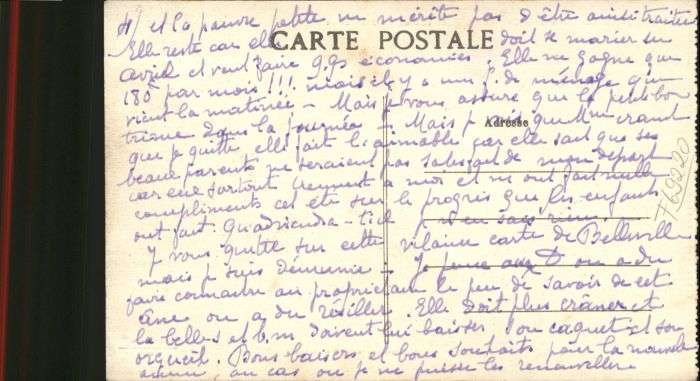 4/ et la pauvre petite ne mérite pas d'être ainsi traitée
Elle reste car elle doit se marier en
CARTE POSTALE
avril et veut faire qqs économies. Elle ne gagne que
180f par mois!!! mais il y a une f. de ménage qui
vient la matinée - Mais je vous assure que la petite bou
trique dans la journée. Mais que Mme craint
Adresse
que je quitte elle fait l'aimable car elle sait que ses
beaux parents ne seraient pas satisfaits de mon départ
car eux surtout tiennent à moi et m'ont fait mille
compliments cet été sur le progrès que les enfants
ont fait. Quadviendra-t-il j'en sais rien.
Je vous quitte sur cette vilaine carte de Belleville
mais je suis démunie. Je pense aux D on a du
faire connaître au propriétaire le peu de savoir de cet
âne on a du résilier. Elle doit plus crâner et
la belle s et b.m doivent lui baisser son caquet et son
orgueil. Bons baisers et bons souhaits pour la nouvelle
année, au cas où je ne puisse les renouveler
769220